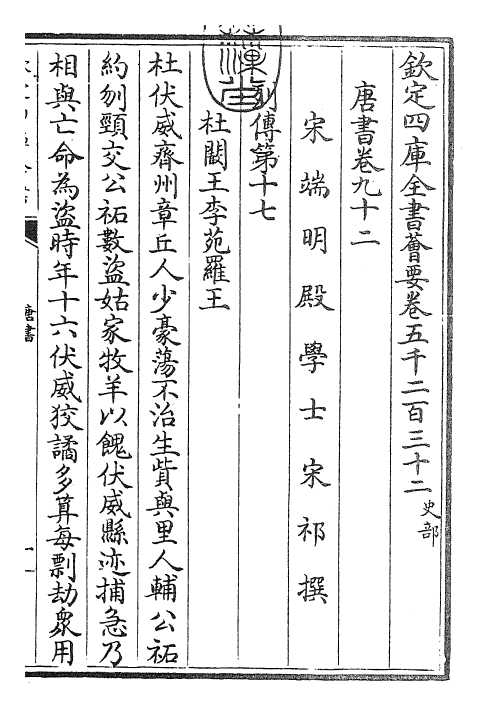 欽定四庫全書薈要卷五千二百三十二史部
唐書卷九十二
宋端明殿學士宋祁撰
列傳第十七
杜闞王李苑羅王
杜伏威齊州章丘人少豪蕩不治生貲與里人輔公祏
約刎頸交公祏數盜姑家牧羊以餽伏威縣迹捕急乃
相與亡命為盜時年十六伏威狡譎多算每剽劫衆用
唐書
一